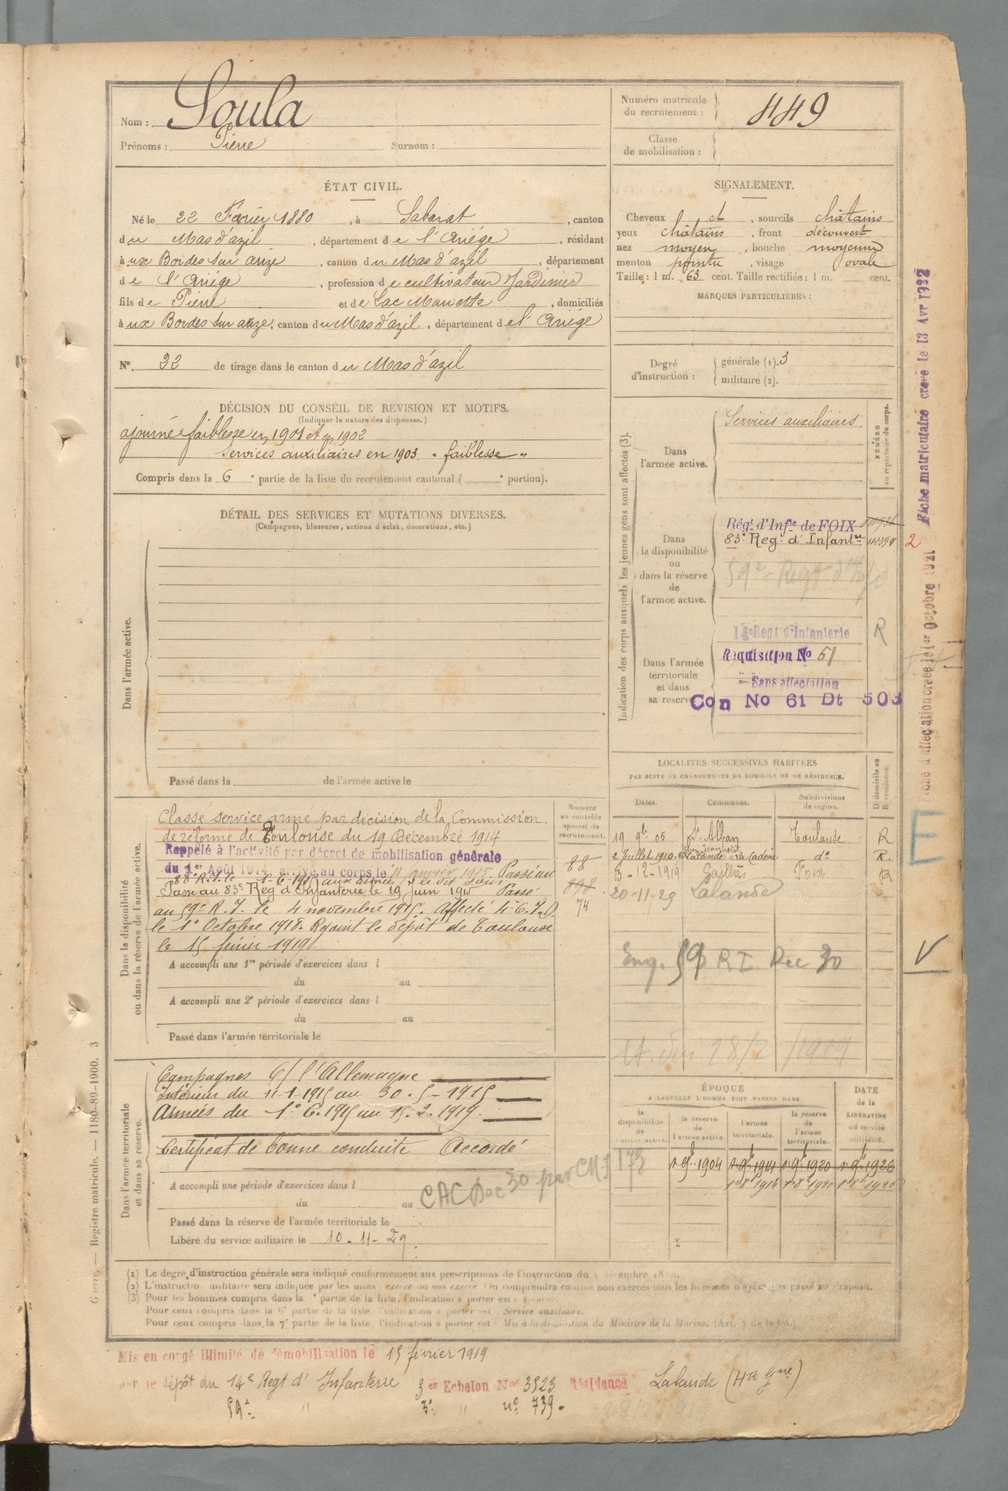 Nom : Soula
Prénoms : Pierre Surnom :
Numéro matricule du recrutement : 449
Classe de mobilisation :
ÉTAT CIVIL.
Né le 22 Février 1880, à Sabarat, canton
du Mas d'azil, département de l'Ariége, résidant
à ux Bordes sur arize, canton du Mas d'azil, département
de l'Ariége, profession de cultivateur Jardinier
fils de Pierre et de Lac Mariette, domiciliés
à ux Bordes sur arize, canton du Mas d'azil, département de l'Ariége
N° 22 de tirage dans le canton du Mas d'azil
SIGNALEMENT.
Cheveux et, sourcils châtains
yeux châtains, front découvert
nez moyen, bouche moyenne
menton pointu, visage ovale
Taille : 1 m. 63 cent. Taille rectifiée : 1 m. cent.
MARQUES PARTICULIÈRES :
Degré d'instruction : générale (1). 3
militaire (2).
DÉCISION DU CONSEIL DE REVISION ET MOTIFS.
(Indiquer la nature des dispenses.)
ajourné faiblesse en 1901 et en 1902
Services auxiliaires en 1903 "faiblesse"
Compris dans la 6e partie de la liste du recrutement cantonal ( e portion).
DÉTAIL DES SERVICES ET MUTATIONS DIVERSES.
(Campagnes, blessures, actions d'éclat, décorations, etc.)
Dans l'armée active.
Passé dans la de l'armée active le
Indication des corps auxquels les jeunes gens sont affectés (3).
NUMÉRO au répertoire du corps.
Dans l'armée active.
Services auxiliaires
Dans la disponibilité ou dans la réserve de l'armée active.
Régt d'Infie de FOIX
83e Regt d'Infantrie
59e Regt d'Infie
Dans l'armée territoriale et dans sa réserve
14e Regt d'Infanterie
R
Requisition No 61
Sans affectation
Con No 61 Dt 503
Fiche matriculaire créée le 13 Avr 1922
2
Fiche d'affectation créée le 1er Octobre 1921
LOCALITÉS SUCCESSIVES HABITÉES
PAR SUITE DE CHANGEMENTS DE DOMICILE OU DE RÉSIDENCE.
Dates. Communes. Subdivisions de région. D. domicile ou R. résidence.
19 9bre 05 St Alban Toulouse R
2 Juillet 1910 Lalande do R.
3-12-1919 Foix R
20-11-29 Lalande
Eng. 59 R I Dec 30
E
V
Dans la disponibilité ou dans la réserve de l'armée active.
Numéro au contrôle spécial du recrutement.
Classé service armé par décision de la Commission
de réforme de Toulouse du 19 Décembre 1914
Rappelé à l'activité par décret de mobilisation générale
du 1er Août 1914, arrivé au corps le 11 janvier 1915. Passé au
Passé au 83e Reg d'Infanterie le 19 juin 1915 Passé
au 59e R.I. le 4 novembre 1915.
le 1er Octobre 1918. Rejoint le dépôt de Toulouse
le 15 février 1919
88
74
A accompli une 1re période d'exercices dans l
du au
A accompli une 2e période d'exercices dans l
du au
Passé dans l'armée territoriale le
Dans l'armée territoriale et dans sa réserve.
Campagnes C/ l'Allemagne
Intérieur du 11-1-1915 au 30.5-1915
Armées du 1er 6.1915 au 15.2.1919
Certificat de bonne conduite Accordé
A accompli une période d'exercices dans l
du au
CAC Dec 30 par CM I 173
Passé dans la réserve de l'armée territoriale le
Libéré du service militaire le 10-11-29
ÉPOQUE À LAQUELLE L'HOMME DOIT PASSER DANS
la disponibilité de l'armée active. la réserve de l'armée active. l'armée territoriale. la réserve de l'armée territoriale. DATE de la LIBÉRATION du service militaire.
1er 9bre 1904 1er 9bre 1914 1er 9bre 1920 1er 9bre 1926
(1) Le degré d'instruction générale sera indiqué conformément aux prescriptions de l'instruction du
(3) Pour les hommes compris dans la e partie de la liste, l'indication à porter est :
Pour ceux compris dans la 6e partie de la liste, l'indication à porter est : Service auxiliaire.
Pour ceux compris dans la 7e partie de la liste, l'indication à porter est : Mis à la disposition du Ministre de la Marine.
Registre matricule. — 1180-89-1900. 3
Mis en congé illimité de démobilisation le 15 février 1919
par le dépôt du 14e Regt d'Infanterie 3er Echelon No 3523 Résidence Lalande (Hte Gne)
59e " 3e " no 739.